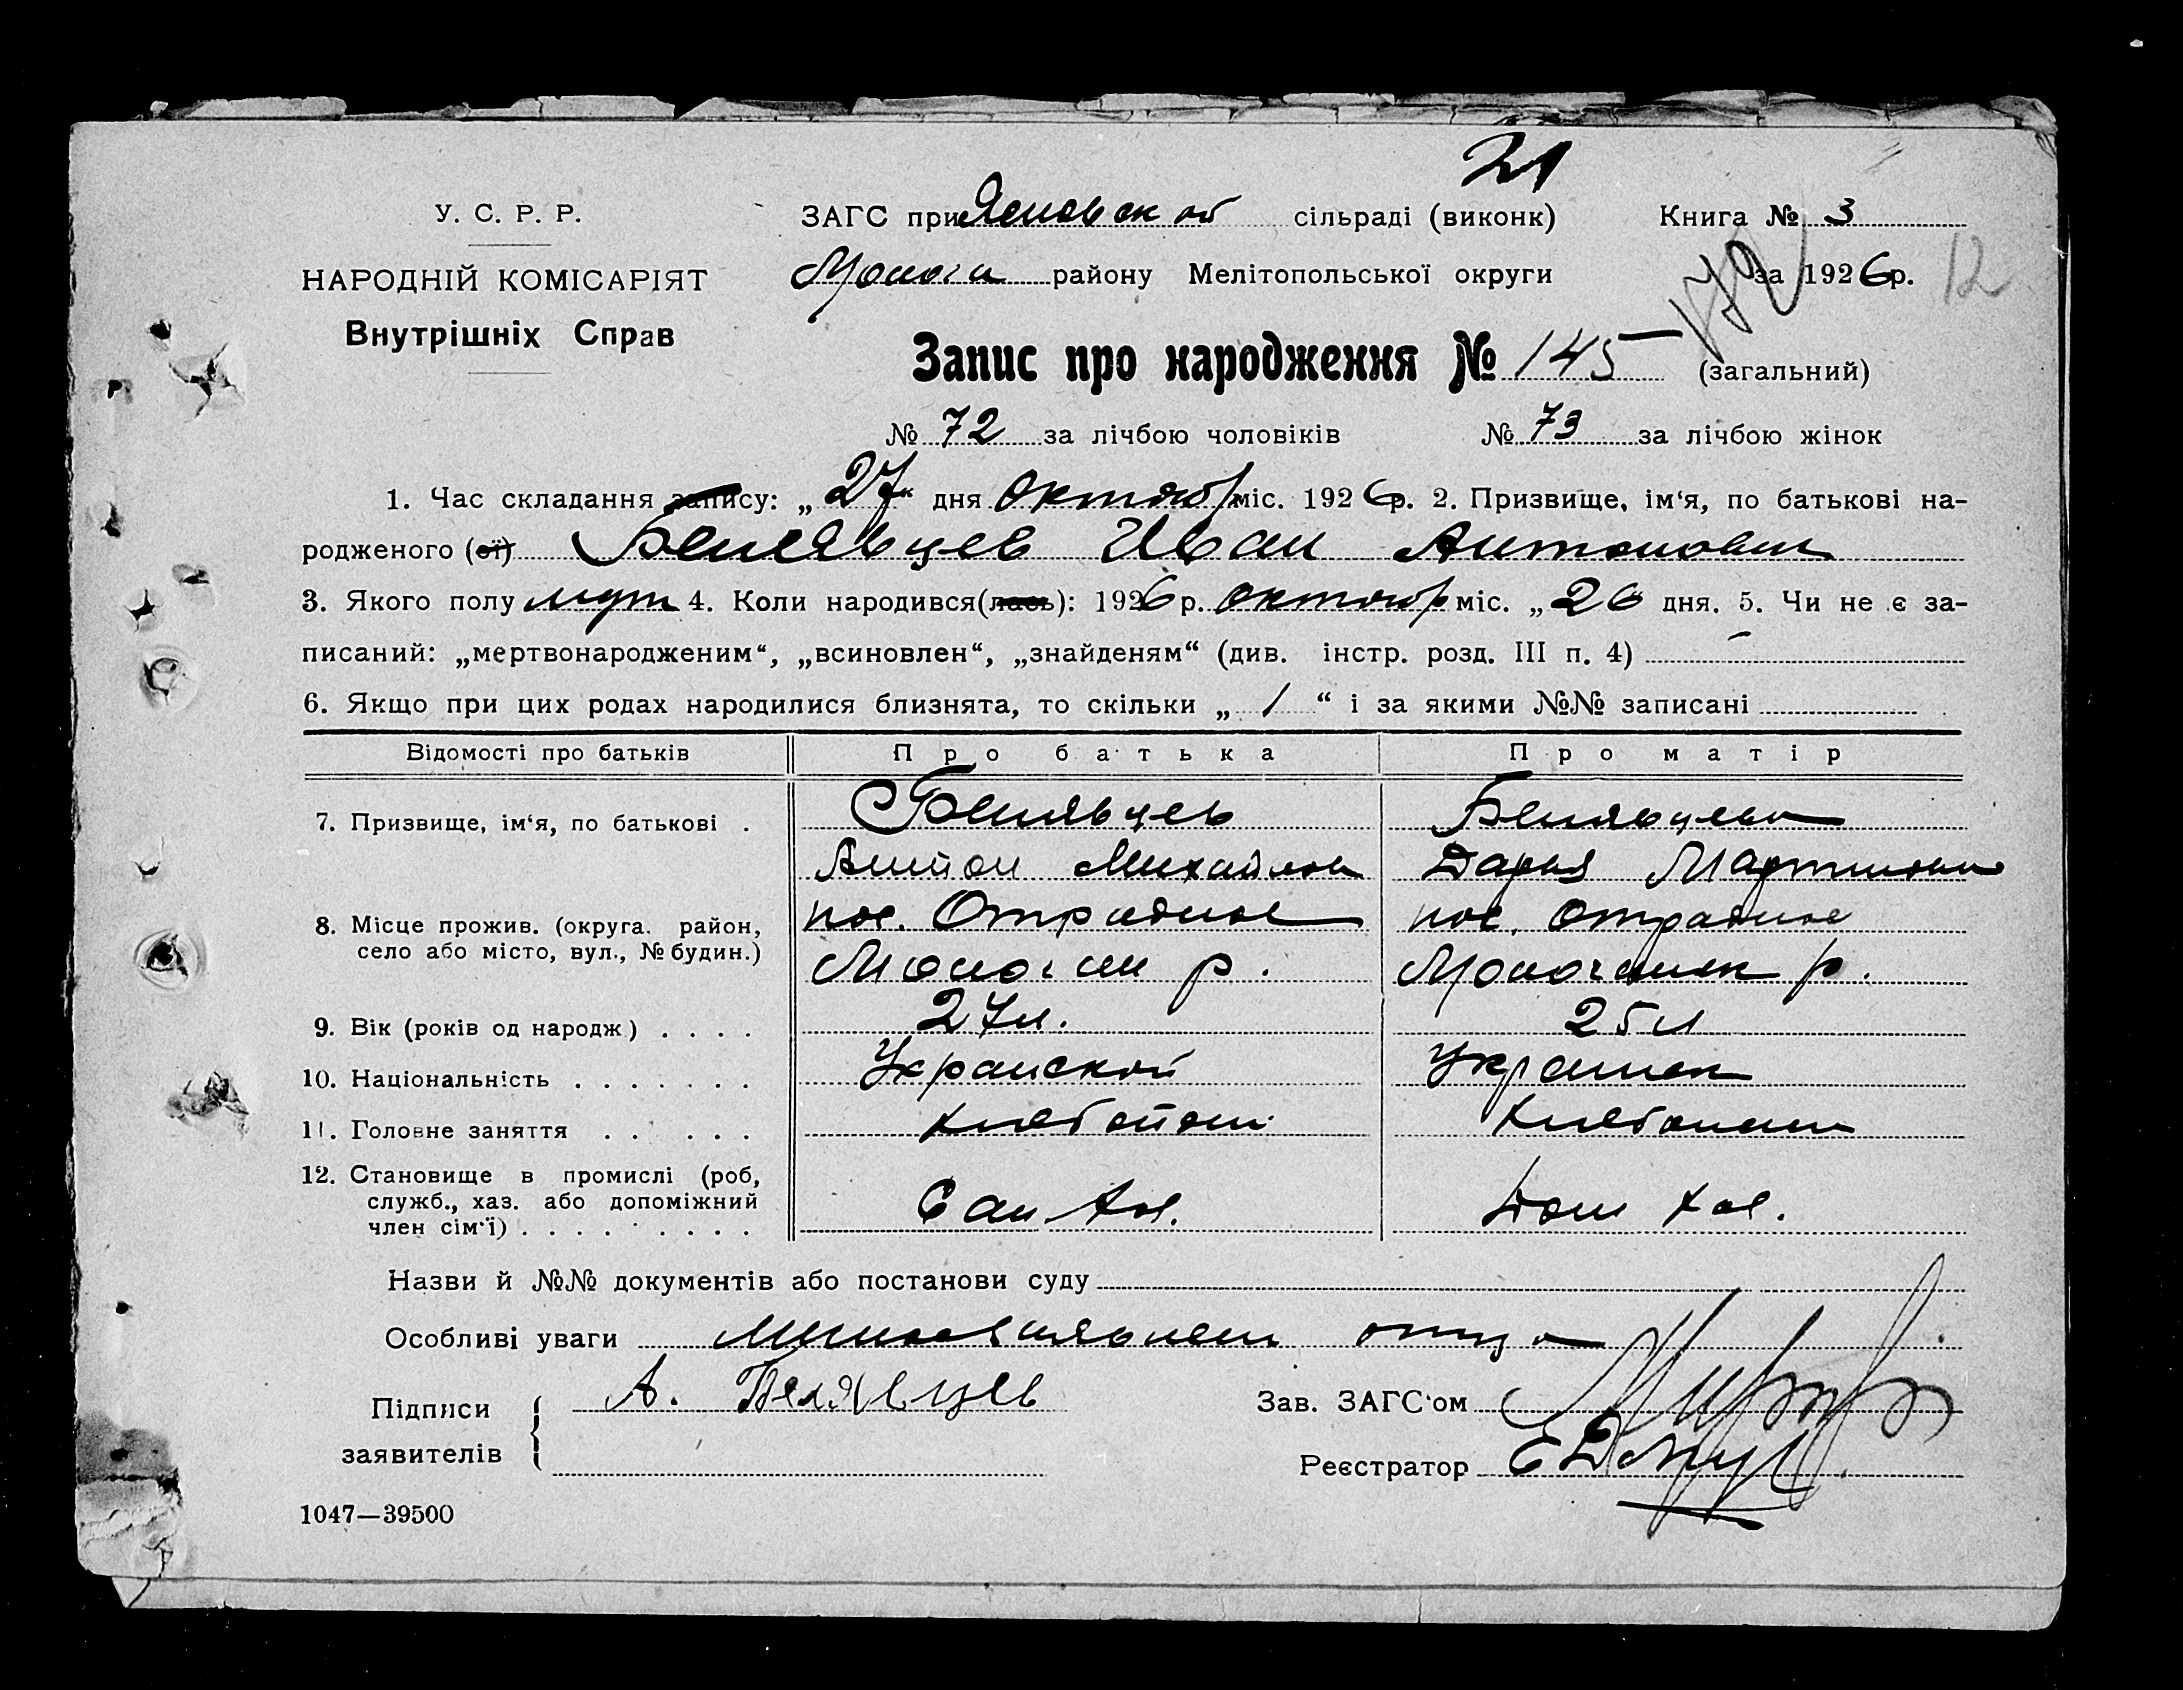 21
У. С. Р. Р.
ЗАГС при сільраді (виконк)
Книга № 3
НАРОДНІЙ КОМІСАРІЯТ
району Мелітопольської округи
за 1926р.
12
Внутрішніх Справ
172
Запис про народження № 145 (загальний)
№ 72 за лічбою чоловіків № 73 за лічбою жінок
1. Час складання запису: „27“ дня октябр міс. 1926р. 2. Призвище, ім‘я, по батькові на-
родженого (ої) Белявцев Иван Антонович
3. Якого полу муж 4. Коли народився(лась): 1926р. октябр міс. „26 дня. 5. Чи не є за-
писаний: „мертвонародженим“, „всиновлен“, „знайденям“ (див. інстр. розд. III п. 4) —
6. Якщо при цих родах народилися близнята, то скільки „ / “ і за якими №№ записані
Відомості про батьків Про батька Про матір
7. Призвище, ім‘я, по батькові . Белявцев Белявцева
Антон Михайлов Дарья Мартинов
8. Місце прожив. (округа, район, пос. Отрадное пос. Отрадное
село або місто, вул., № будин.) р. р.
9. Вік (років од народж) . . . . 27л. 25л
10. Національність . . . . . . . Украиской Украинск
11. Головне заняття . . . . . . хлебопаш. хлебопаш
12. Становище в промислі (роб,
служб., хаз. або допоміжний
член сім‘ї) . . . . . . . . Сам хоз. Дом хоз.
Назви й №№ документів або постанови суду
Особливі уваги отца
Підписи
заявителів
А. Белявцев
Зав. ЗАГС‘ом
Реєстратор
1047—39500